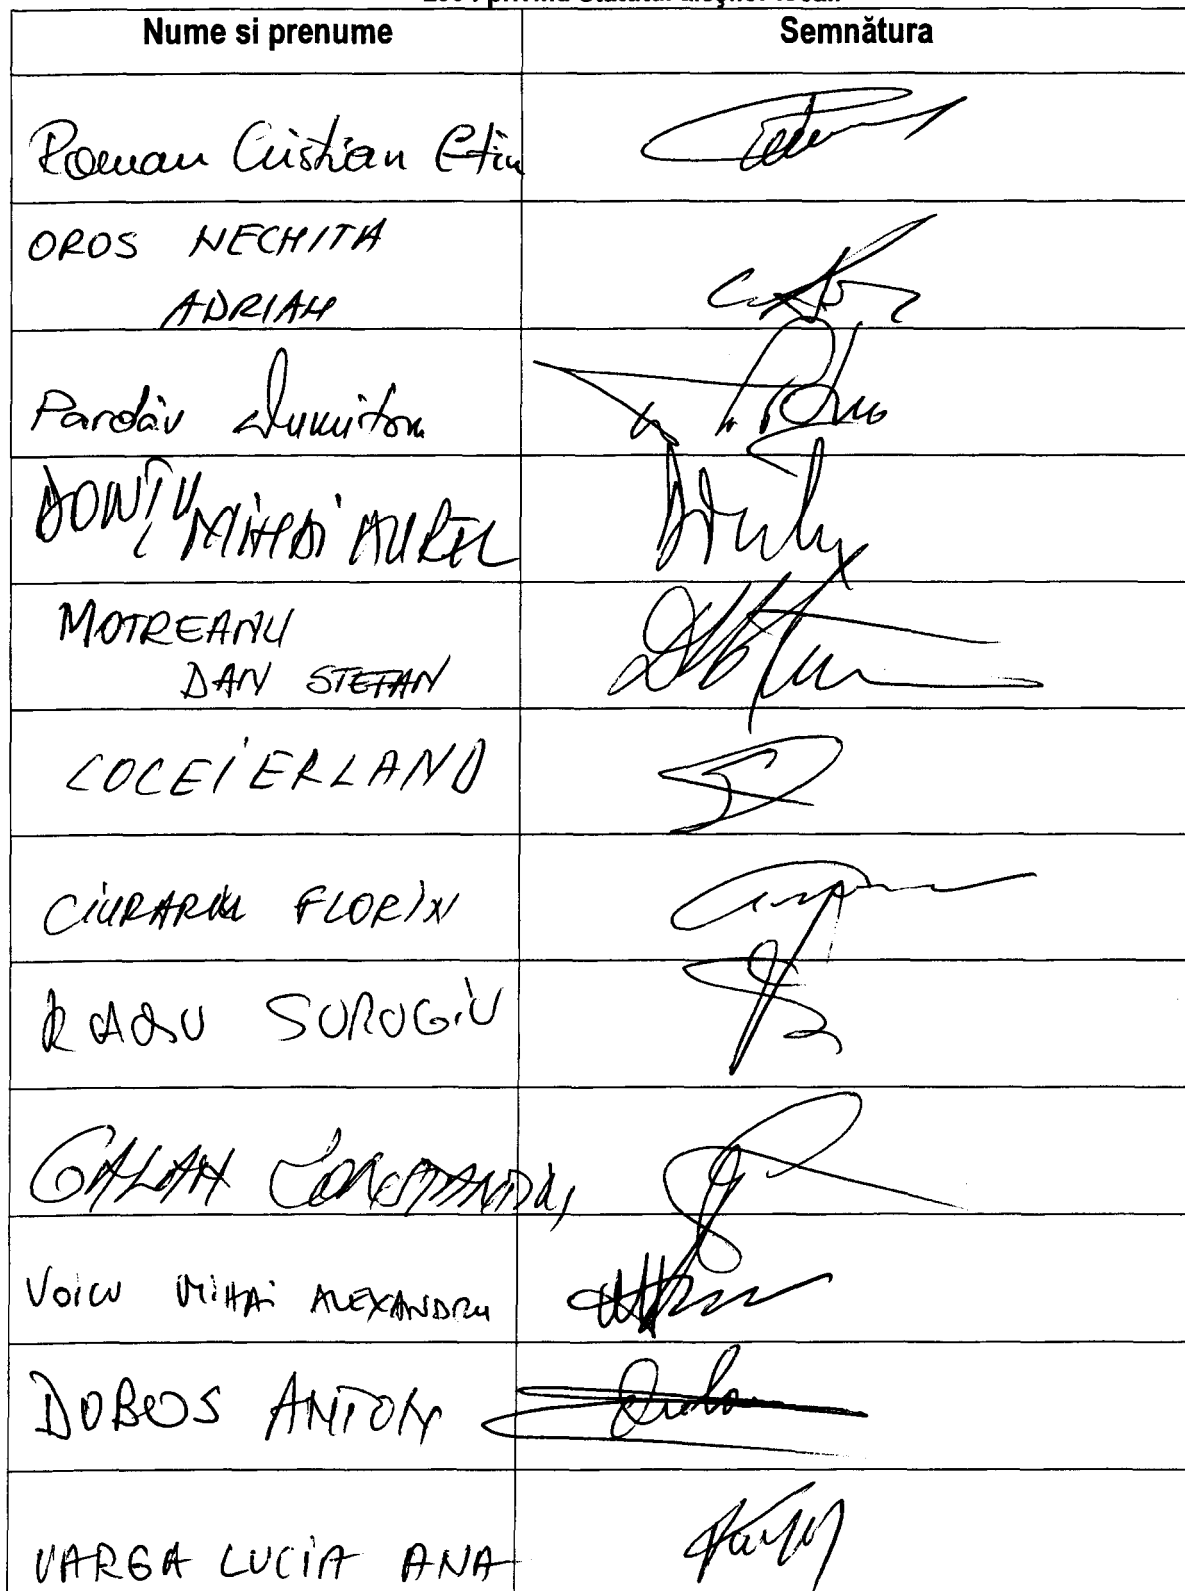 privind Statutul aleşilor locali
Nume si prenume Semnătura
Roman Cristian
OROS NECHITA
ADRIAN
Pardău Dumitru
DONȚU MIHAI AUREL
MOTREANU
DAN STEFAN
COCEI ERLAND
CIURARIU FLORIN
RADU SURUGIU
GALAN CONSTANTIN
VOICU MIHAI ALEXANDRU
DOBOS ANTON
VARGA LUCIA ANA